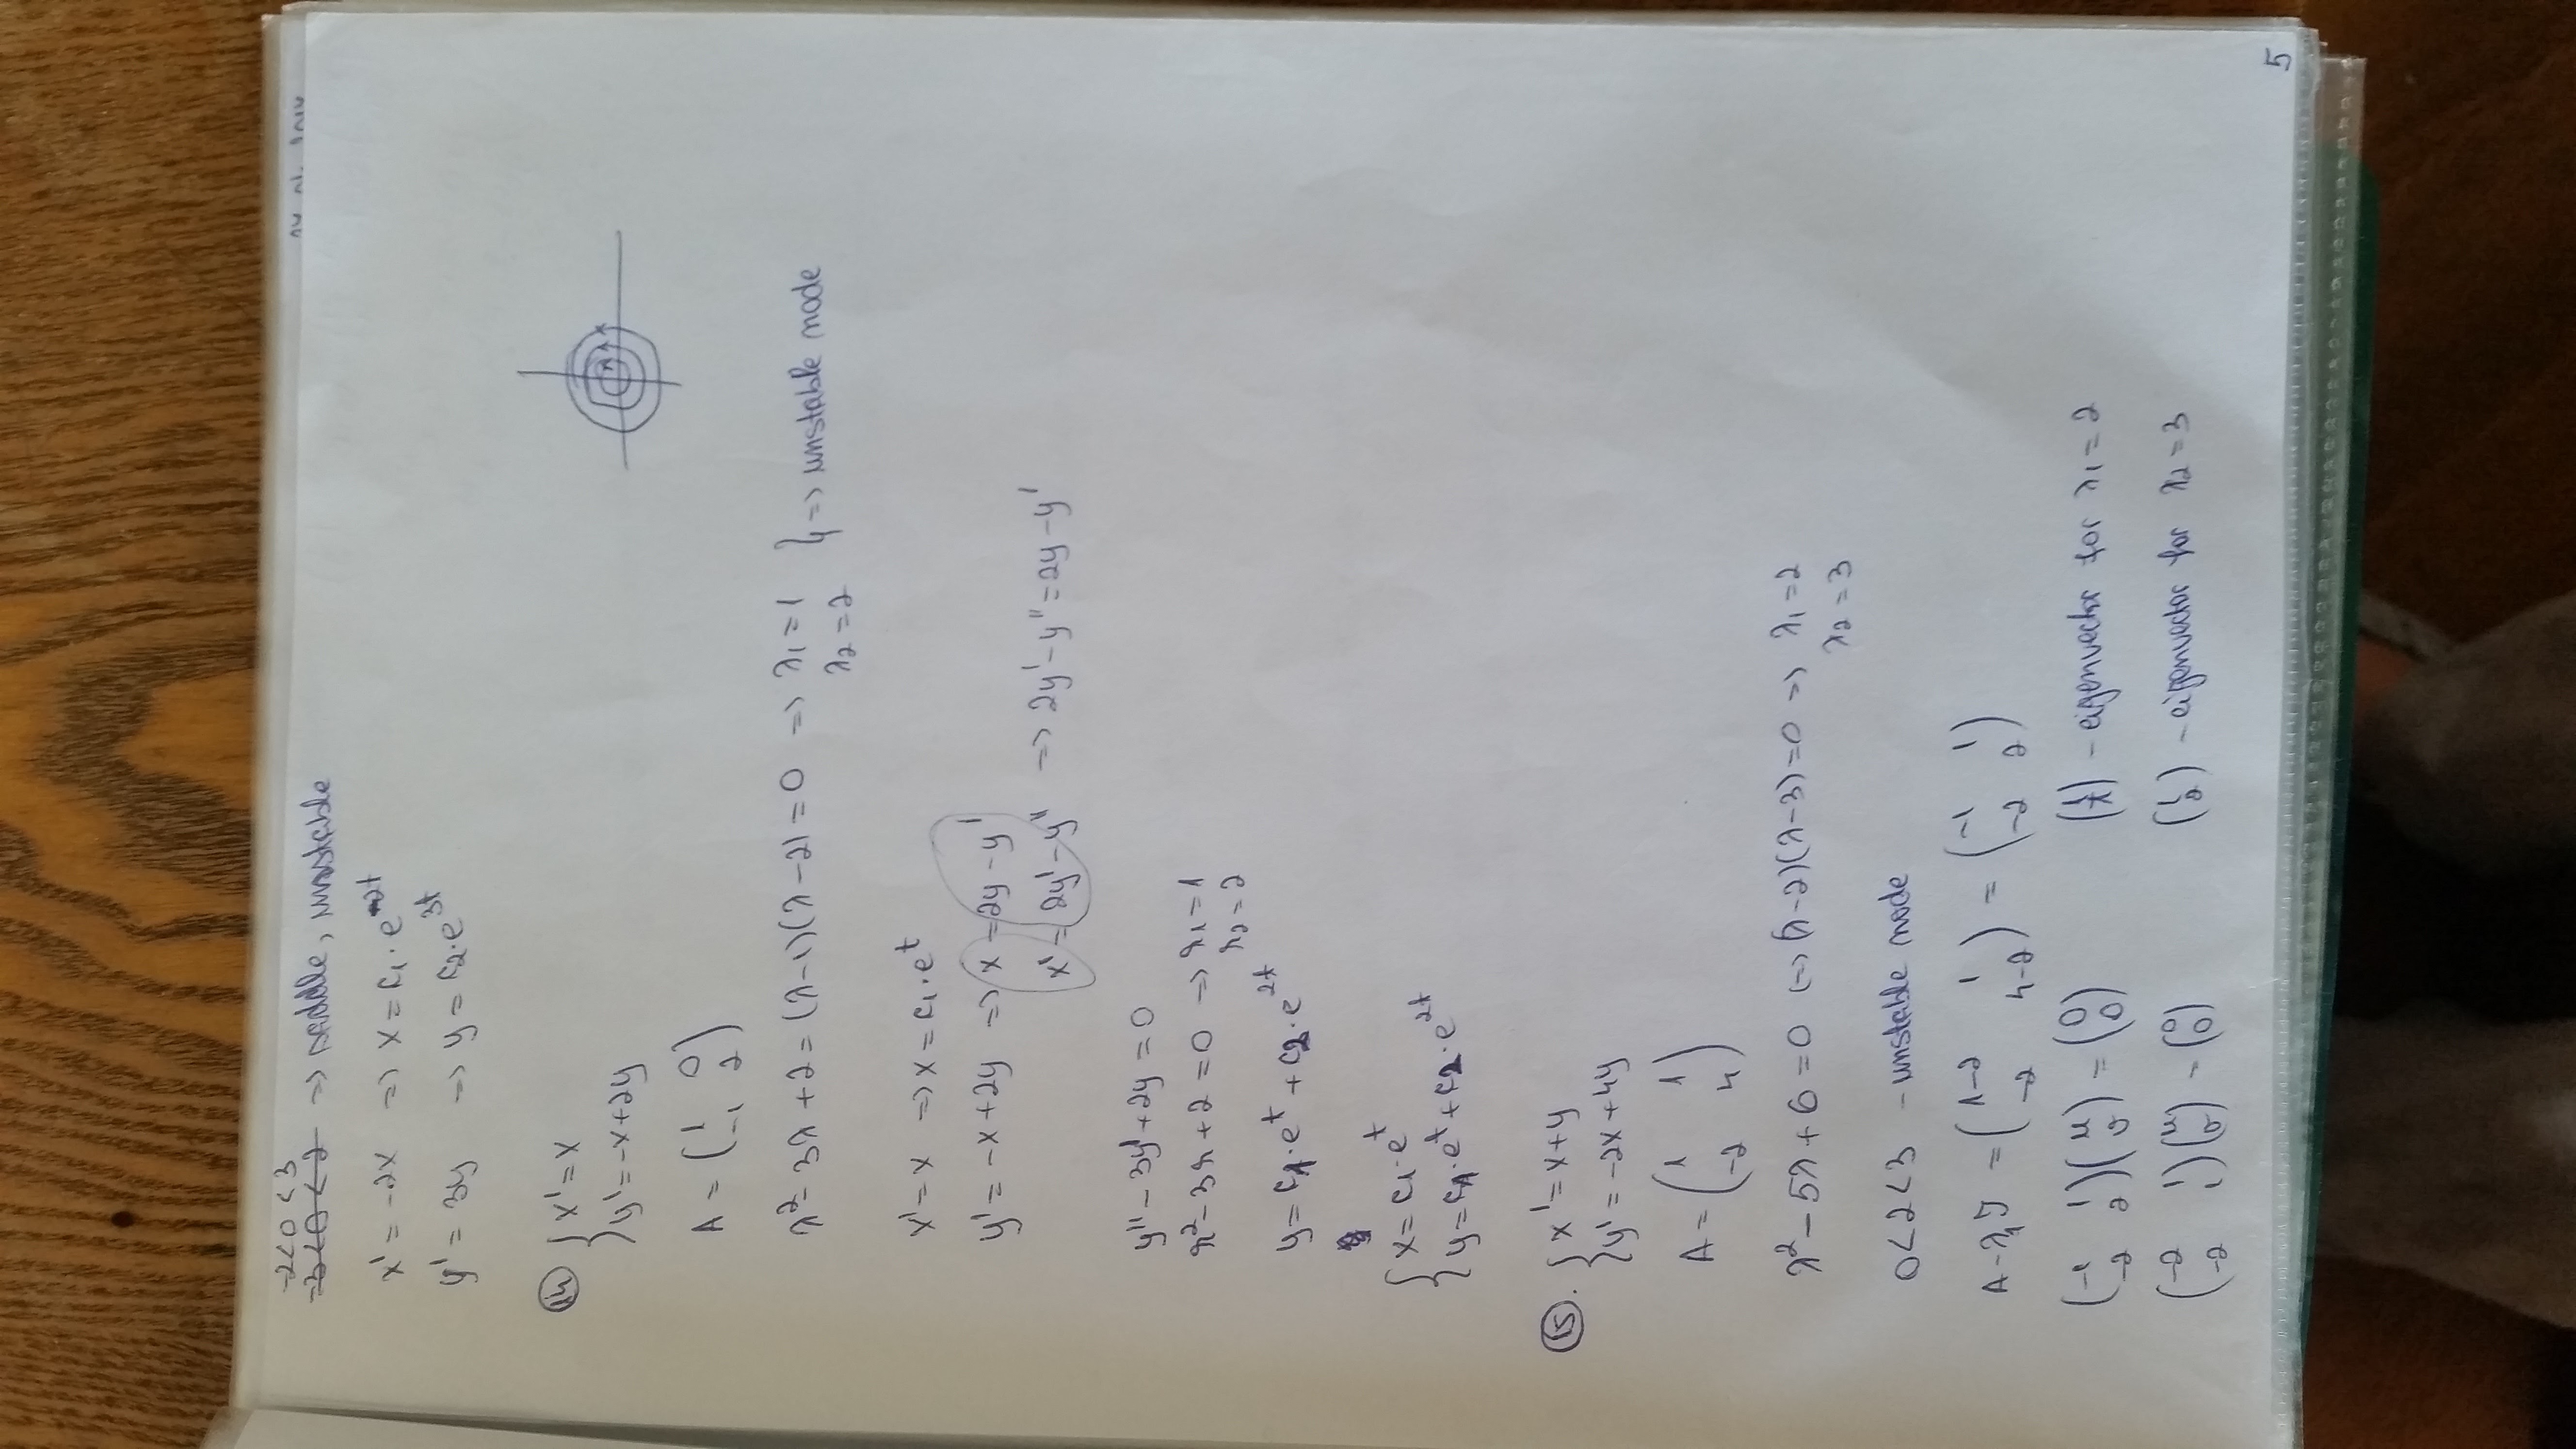 -2<0<3
-3<0<2 => saddle, unstable
x' = -2x => x = c₁·e^-2t
y' = 3y => y = c₂·e^3t
14 { x' = x
y' = -x+2y
A = (1 0
-1 2)
λ² - 3λ + 2 = (λ-1)(λ-2) = 0 => λ₁ = 1 } => unstable node
λ₂ = 2
x' = x => x = c₁·e^t
y' = -x+2y => x = 2y - y'
x' = 2y' - y'' => 2y' - y'' = 2y - y'
y'' - 3y' + 2y = 0
r² - 3r + 2 = 0 => r₁ = 1
r₂ = 2
y = c₁·e^t + c₂·e^2t
{ x = c₁·e^t
y = c₁·e^t + c₂·e^2t
15. { x' = x+y
y' = -2x+4y
A = (1 1
-2 4)
λ² - 5λ + 6 = 0 <=> (λ-2)(λ-3) = 0 => λ₁ = 2
λ₂ = 3
0<2<3 - unstable node
A - λ₁I = (1-2 1
-2 4-2) = (-1 1
-2 2)
(-1 1
-2 2)(u
v) = (0
0) (1
1) - eigenvector for λ₁ = 2
(-2 1
-2 1)(u
v) = (0
0) (1
2) - eigenvector for λ₂ = 3
5